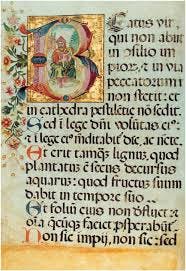 Beatus vir,
qui non abiit
in cōsilio im
piorū, et in via
peccatorum
non stetit: et
in cathedra pestilētie nō sedit.
Sed ī lege dn̄i volūtas eiꝰ:
et ī lege eiꝰ meditabit' die, ac nocte.
Et erit tamq̄ lignum, quod
plantatū ē secus decursus
aquarum: quod fructum suum
dabit in tempore suo
Et foliū eius non defluet: et
oīa quecūq̄ faciet prosperabūt'.
Non sic impij, non sic: sed